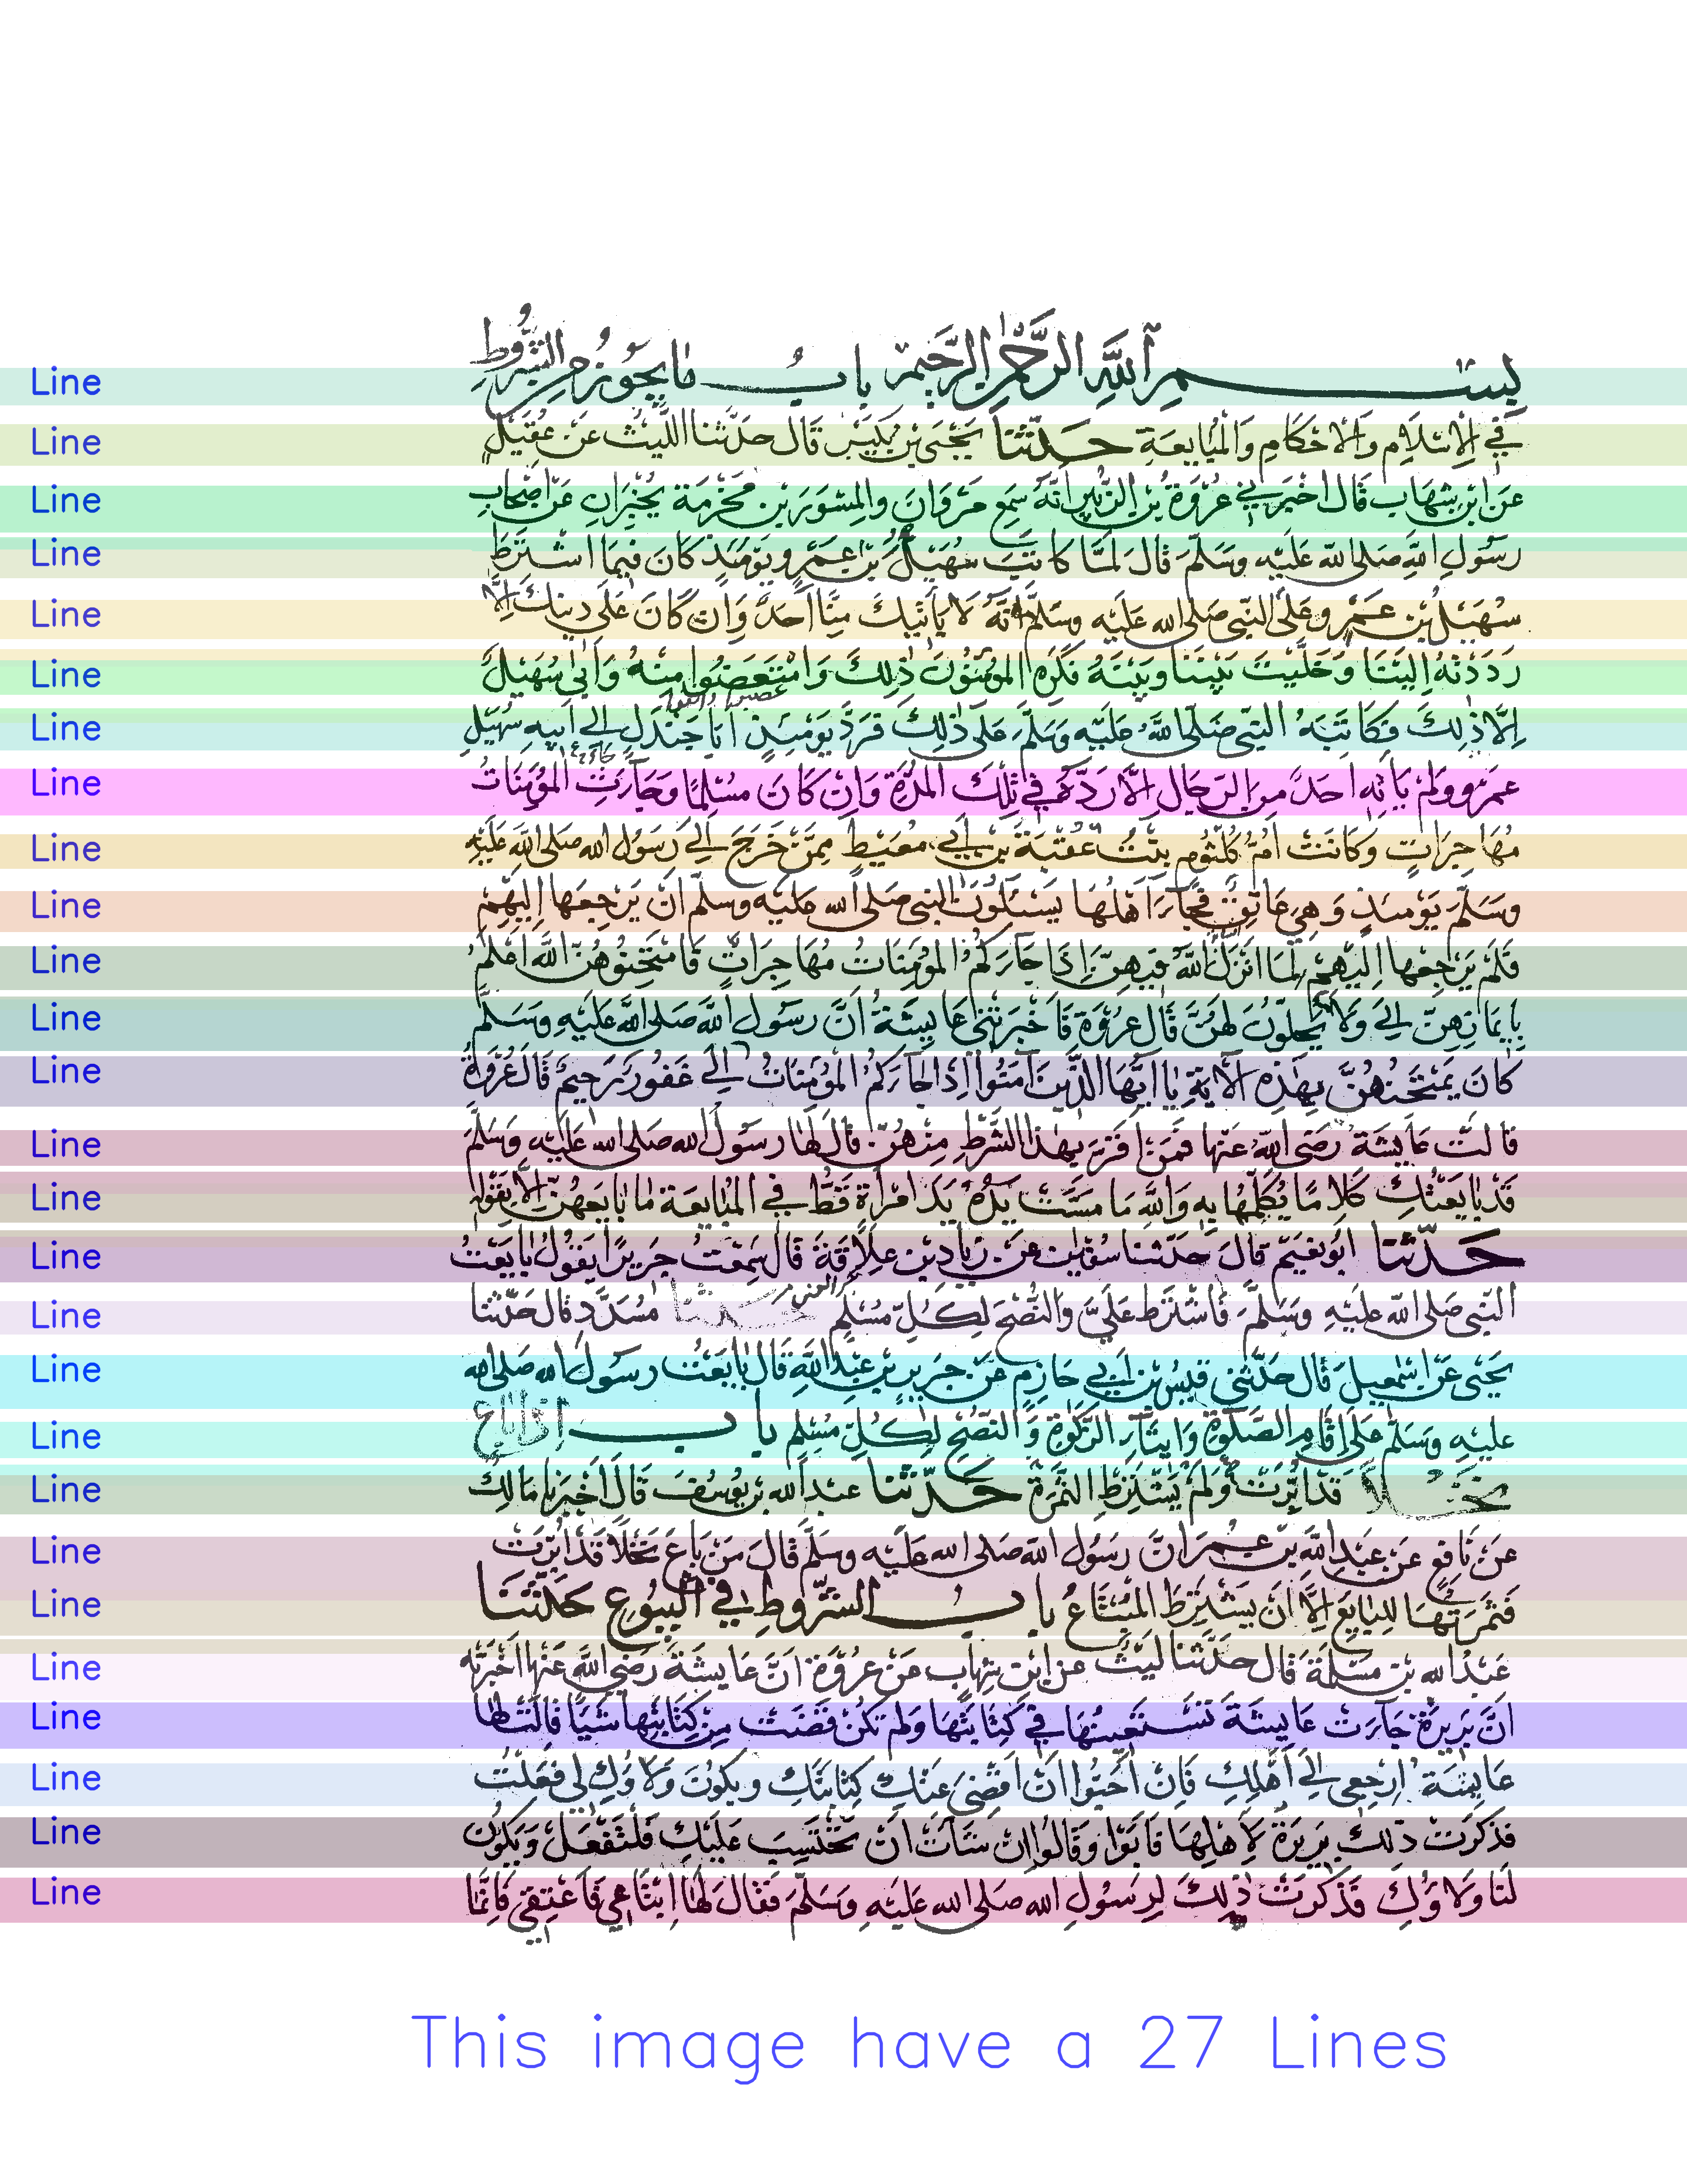 Line بسم الله الرحمن الرحيم باب ما يجوز من الشروط
Line في الاسلام والاحكام والمبايعة حدثنا يحيى بن بكير قال حدثنا الليث عن عقيل
Line عن ابن شهاب قال اخبرني عروة بن الزبير انه سمع مروان والمسور بن مخرمة يخبران عن اصحاب
Line رسول الله صلى الله عليه وسلم قال لما كاتب سهيل بن عمرو يومئذ كان فيما اشترط
Line سهيل بن عمرو على النبي صلى الله عليه وسلم انه لا ياتيك منا احد وان كان على دينك الا
Line رددته الينا وخليت بيننا وبينه فكره المؤمنون ذلك وامتعضوا منه وابى سهيل
Line الا ذلك فكاتبه النبي صلى الله عليه وسلم على ذلك فرد يومئذ ابا جندل الى ابيه سهيل
Line عمرو ولم ياته احد من الرجال الا رده في تلك المدة وان كان مسلما وجاءت المؤمنات
Line مهاجرات وكانت ام كلثوم بنت عقبة بن ابي معيط ممن خرج الى رسول الله صلى الله عليه
Line وسلم يومئذ وهي عاتق فجاء اهلها يسئلون النبي صلى الله عليه وسلم ان يرجعها اليهم
Line فلم يرجعها اليهم لما انزل الله فيهن اذا جاءكم المؤمنات مهاجرات فامتحنوهن الله اعلم
Line بايمانهن الى ولا هم يحلون لهن قال عروة فاخبرتني عايشة ان رسول الله صلى الله عليه وسلم
Line كان يمتحنهن بهذه الاية يا ايها الذين امنوا اذا جاءكم المؤمنات الى غفور رحيم قال عروة
Line قالت عايشة رضي الله عنها فمن اقر بهذا الشرط منهن قال لها رسول الله صلى الله عليه وسلم
Line قد بايعتك كلاما يكلمها به والله ما مست يده يد امراة قط في المبايعة ما بايعهن الا بقوله
Line حدثنا ابو نعيم قال حدثنا سفيان عن زياد بن علاقة قال سمعت جريرا يقول بايعت
Line النبي صلى الله عليه وسلم فاشترط علي والنصح لكل مسلم حدثنا مسدد قال حدثنا
Line يحيى عن اسمعيل قال حدثني قيس بن ابي حازم عن جرير بن عبد الله قال بايعت رسول الله صلى الله
Line عليه وسلم على اقام الصلوة وايتاء الزكوة والنصح لكل مسلم باب اذا باع
Line نخلا قد ابرت ولم يشترط الثمرة حدثنا عبد الله بن يوسف قال اخبرنا مالك
Line عن نافع عن عبد الله بن عمر ان رسول الله صلى الله عليه وسلم قال من باع نخلا قد ابرت
Line فثمرتها للبايع الا ان يشترط المبتاع باب الشروط في البيوع حدثنا
Line عبد الله بن مسلمة قال حدثنا ليث عن ابن شهاب عن عروة ان عايشة رضي الله عنها اخبرته
Line ان بريرة جاءت عايشة تستعينها في كتابتها ولم تكن قضت من كتابتها شيئا قالت لها
Line عايشة ارجعي الى اهلك فان احبوا ان اقضي عنك كتابتك ويكون ولاؤك لي فعلت
Line فذكرت ذلك بريرة لاهلها فابوا وقالوا ان شاءت ان تحتسب عليك فلتفعل ويكون
Line لنا ولاؤك فذكرت ذلك لرسول الله صلى الله عليه وسلم فقال لها ابتاعي فاعتقي فانما
This image have a 27 Lines